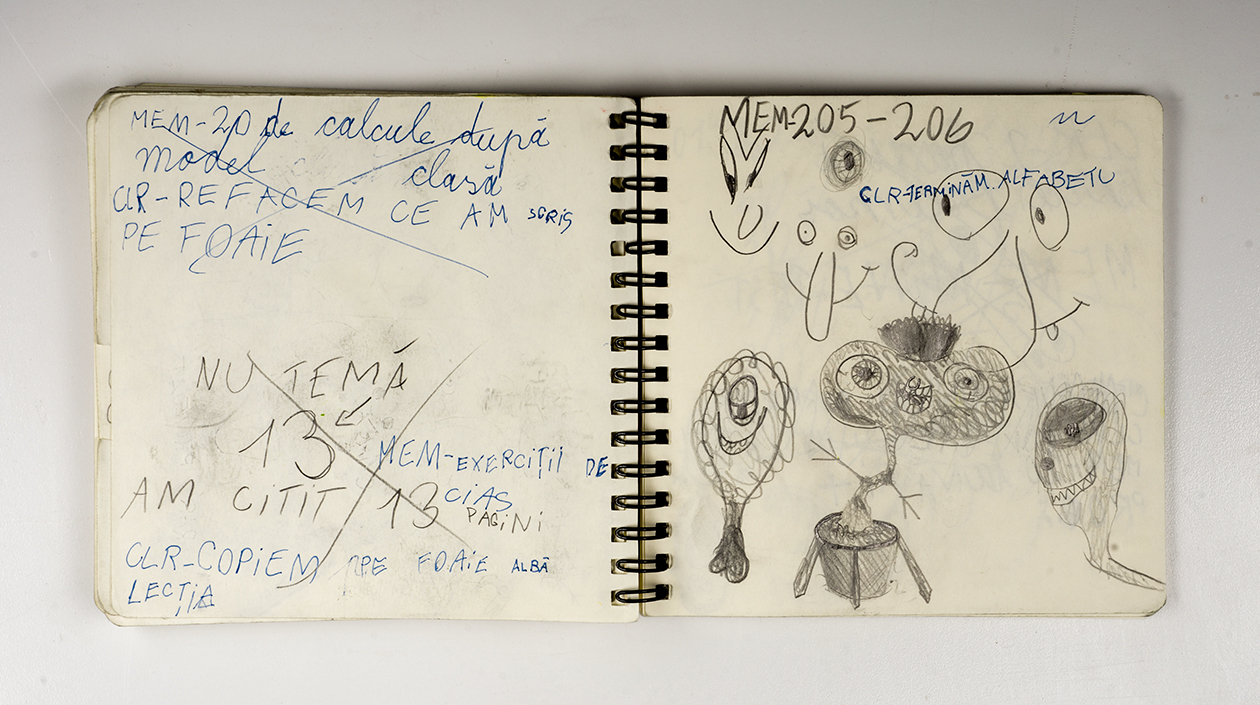 MEM-20 de calcule după
model clasă
CLR-REFACEM CE AM SCRIS
PE FOAIE
NU TEMĂ
13
MEM-EXERCIȚII DE
CLAS
AM CITIT 13 PAGINI
CLR-COPIEM PE FOAIE ALBĂ
LECȚIA
MEM205-206
CLR-TERMINĂM ALFABETU